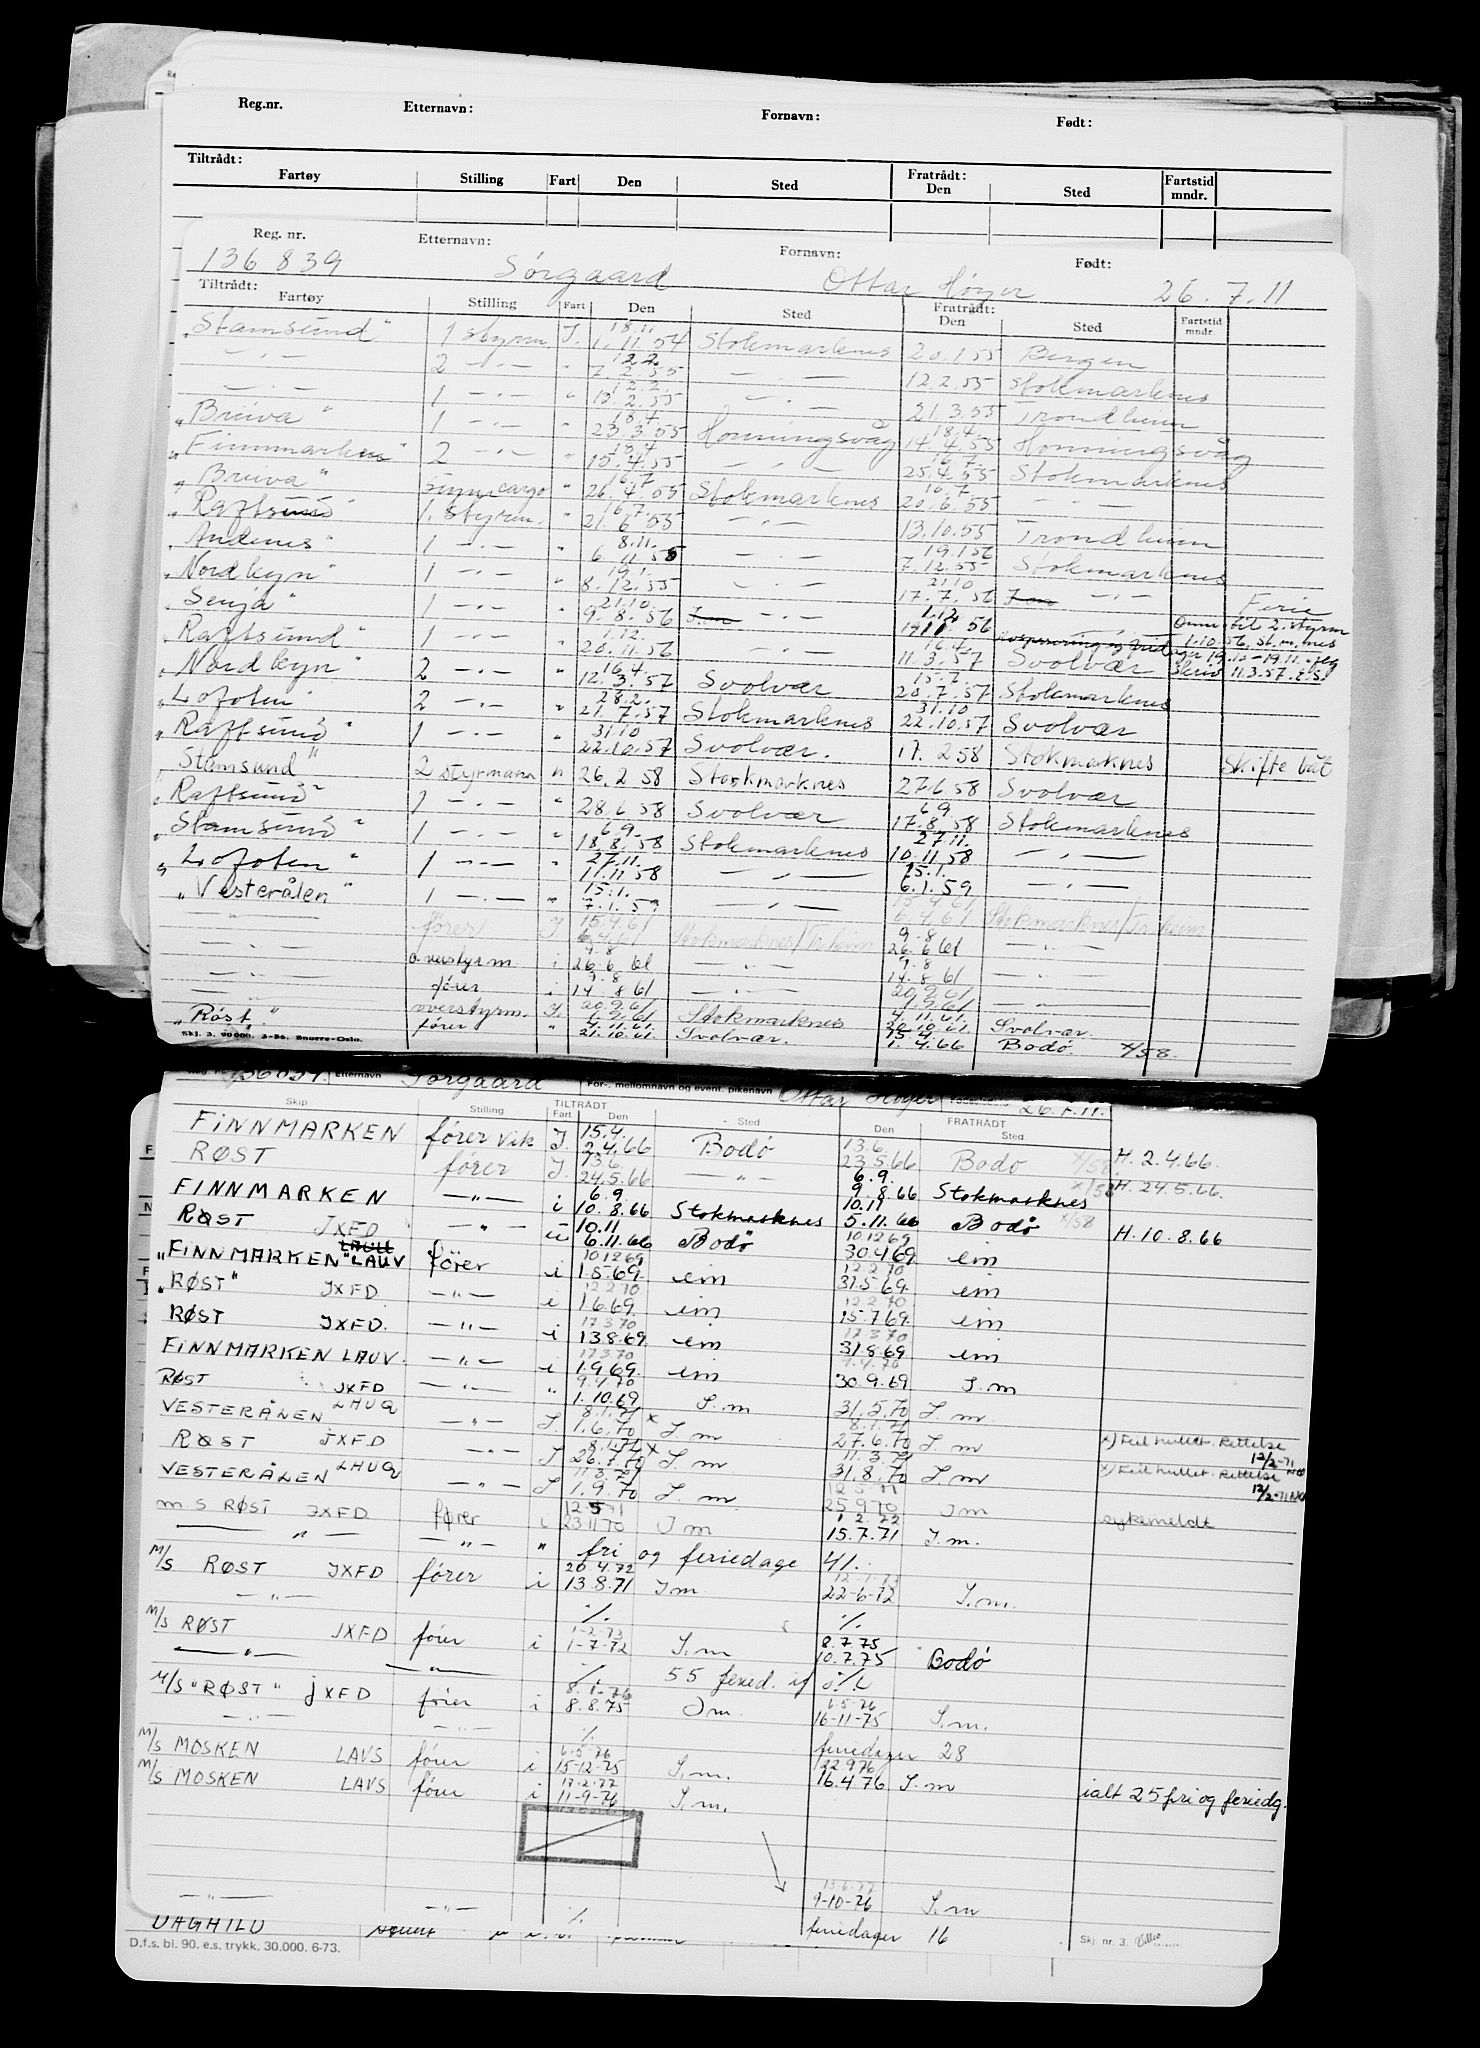 Reg.nr. Etternavn: Fornavn: Født:
Tiltrådt: Fratrådt:
Fartøy Stilling Fart Den Sted Den Sted Fartstid mndr.
Reg. nr. Etternavn: Fornavn: Født:
136 839 Sørgaard Ottar Høyer 26.7.11
Tiltrådt: Fratrådt:
Fartøy Stilling Fart Den Sted Den Sted Fartstid mndr.
"Stamsund" 1 styrm. I. 18.11. 1.11.54 Stokmarknes 20.1.55 Bergen
— " — 2 — " — " 12.2. 7.2.55 — " — 12.2.55 Stokmarknes
— " — 1 — " — " 12.2. 13.2.55 — " — 21.3.55 Trondheim
"Breiva" 1 — " — " 18.4. 23.3.55 Honningsvåg 18.4. 14.4.55 Honningsvåg
"Finnmarken" 2 — " — " 18.4. 15.4.55 — " — 16.7. 25.4.55 Stokmarknes
"Breiva" supercargo " 16.7. 26.4.55 Stokmarknes 16.7. 20.6.55 — " —
"Raftsund" 1. styrm. " 16.7. 21.6.55 — " — 13.10.55 Trondheim
"Andenes" 1 — " — " 8.11. 6.11.55 — " — 19.1.56 7.12.55 Stokmarknes
"Nordkyn" 1 — " — " 19.1. 8.12.55 — " — 21.10 17.7.56 I.m — " — Ferie
"Senja" 1 — " — " 21.10. 9.8.56 I.m — " — 1.12. 19.11.56 Avspasering og frid
"Raftsund" 1 — " — " 1.12. 20.11.56 — " — 16.4. 11.3.57 Svolvær
"Nordkyn" 2 — " — " 16.4. 12.3.57 Svolvær 15.7. 20.7.57 Stokmarknes
"Lofoten" 2 — " — " 28.2. 21.7.57 Stokmarknes 31.10 22.10.57 Svolvær
"Raftsund" 1 — " — " 31.10 22.10.57 Svolvær. 17.2.58 Stokmaknes skifte båt
"Stamsund" 2 styrmann " 26.2.58 Stokmarknes 27.6.58 Svolvær
"Raftsund" 1 — " — " 28.6.58 Svolvær 6.9 17.8.58 Stokmarknes
"Stamsund" 1 — " — " 6.9. 18.8.58 Stokmarknes 27.11. 10.11.58 — " —
"Lofoten" 1 — " — " 27.11. 11.11.58 — " — 15.1. 6.1.59 — " —
"Vesterålen" 1 — " — " 15.1. 7.1.59 — " — 15.4.61 6.4.61 Stokmarknes/Tr.heim
— " — fører I 15.4.61 6.4.61 Stokmarknes/Tr.heim 9.8 26.6.61 — " —
— " — overstyrm. i 9.8 26.6.61 — " — 9.8 14.8.61 — " —
— " — fører i 9.8 14.8.61 — " — 20.9.61 1.9.61 — " —
— " — overstyrm. I. 20.9.61 1.9.61 Stokmarknes 4.11.61. 20.10.61. Svolvær.
"Røst" fører " 4.11.61. 21.10.61. Svolvær. 15.4. 1.4.66 Bodø. x/58.
Skj. 3. 90 000. 3-56. Snorre-Oslo.
136839. Etternavn Sørgaard For-, mellomnavn og event. pikenavn Ottar Høyer 26.7.11.
Skip Stilling TILTRÅDT Fart Den Sted Den FRATRÅDT Sted
FINNMARKEN fører vik I. 15.4. 2.4.66 Bodø 13.6. 23.5.66 Bodø x/58 H. 2.4.66.
RØST fører I. 13.6. 24.5.66 — " — 6.9. 9.8.66 Stokmarknes x/58 H. 24.5.66.
FINNMARKEN — " — i 6.9. 10.8.66 Stokmarknes 10.11 5.11.66 Bodø x/58 H. 10.8.66
RØST JXFD — " — i 10.11 6.11.66 Bodø 10 12 69 30.4.69 im
"FINNMARKEN" LAUV fører i 10 12 69 1.5.69. im 12 2 70 31.5.69. im
"RØST" JXFD — " — i 12 2 70 1.6.69. im 12 2 70 15.7.69. im
RØST JXFD. — " — i 17 3 70 13.8.69. im 17 3 70 31.8.69 im
FINNMARKEN LAUV. — " — i 17 3 70 1.9.69. im 9.4.70 30.9.69 I.m
RØST JXFD — " — " 9.4.70 1.10.69 I.m 31.5.70 I.m
VESTERÅLEN LHUQ — " — I. 8.1.71 1.6.70 x I.m 8.1.71 27.6.70 I.m x) Feil hullet. Rettelse 12/2-71
RØST JXFD — " — I 8.1.71 26.7.70 x I.m 11.3.71 31.8.70 I.m x) Feil hullet. Rettelse 12/2-71
VESTERÅLEN LHUQ — " — I 11.3.71 1.9.70 I.m. 12 5 71 25 9 70 I m sykemeldt
m.s RØST JXFD fører i 12 5 71 23 11 70 I m 1 2. 72 15.7.71 I.m.
— " — — " — " fri og feriedage 41.
M/S RØST JXFD fører i 20.4.72 13.8.71 I m. 22-6-72 I.m.
— " — % %
M/S RØST JXFD fører i 1-2-73 1-7-72 I.m 8.7.75 10.7.75 Bodø
— " — — " — % 55 feried.
M/S "RØST" JXFD fører i 8.1.76 8.8.75 I m. 6.5-76 16-11-75 I.m.
— " — — " — % feriedager 28
M/S MOSKEN LAVS fører i 6.5.76 15-12-75 I.m. 22 9 76 16.4.76 I.m
M/S MOSKEN LAVS fører i 17.2.77 11-9-76 I.m. ialt 25 fri og feriedg.
13.6.77 9-10-76 I.m
— " — — " — % feriedager 16
VAGHILD
D.f.s. bl. 90. e.s. trykk. 30.000. 6-73. Skj. nr. 3.